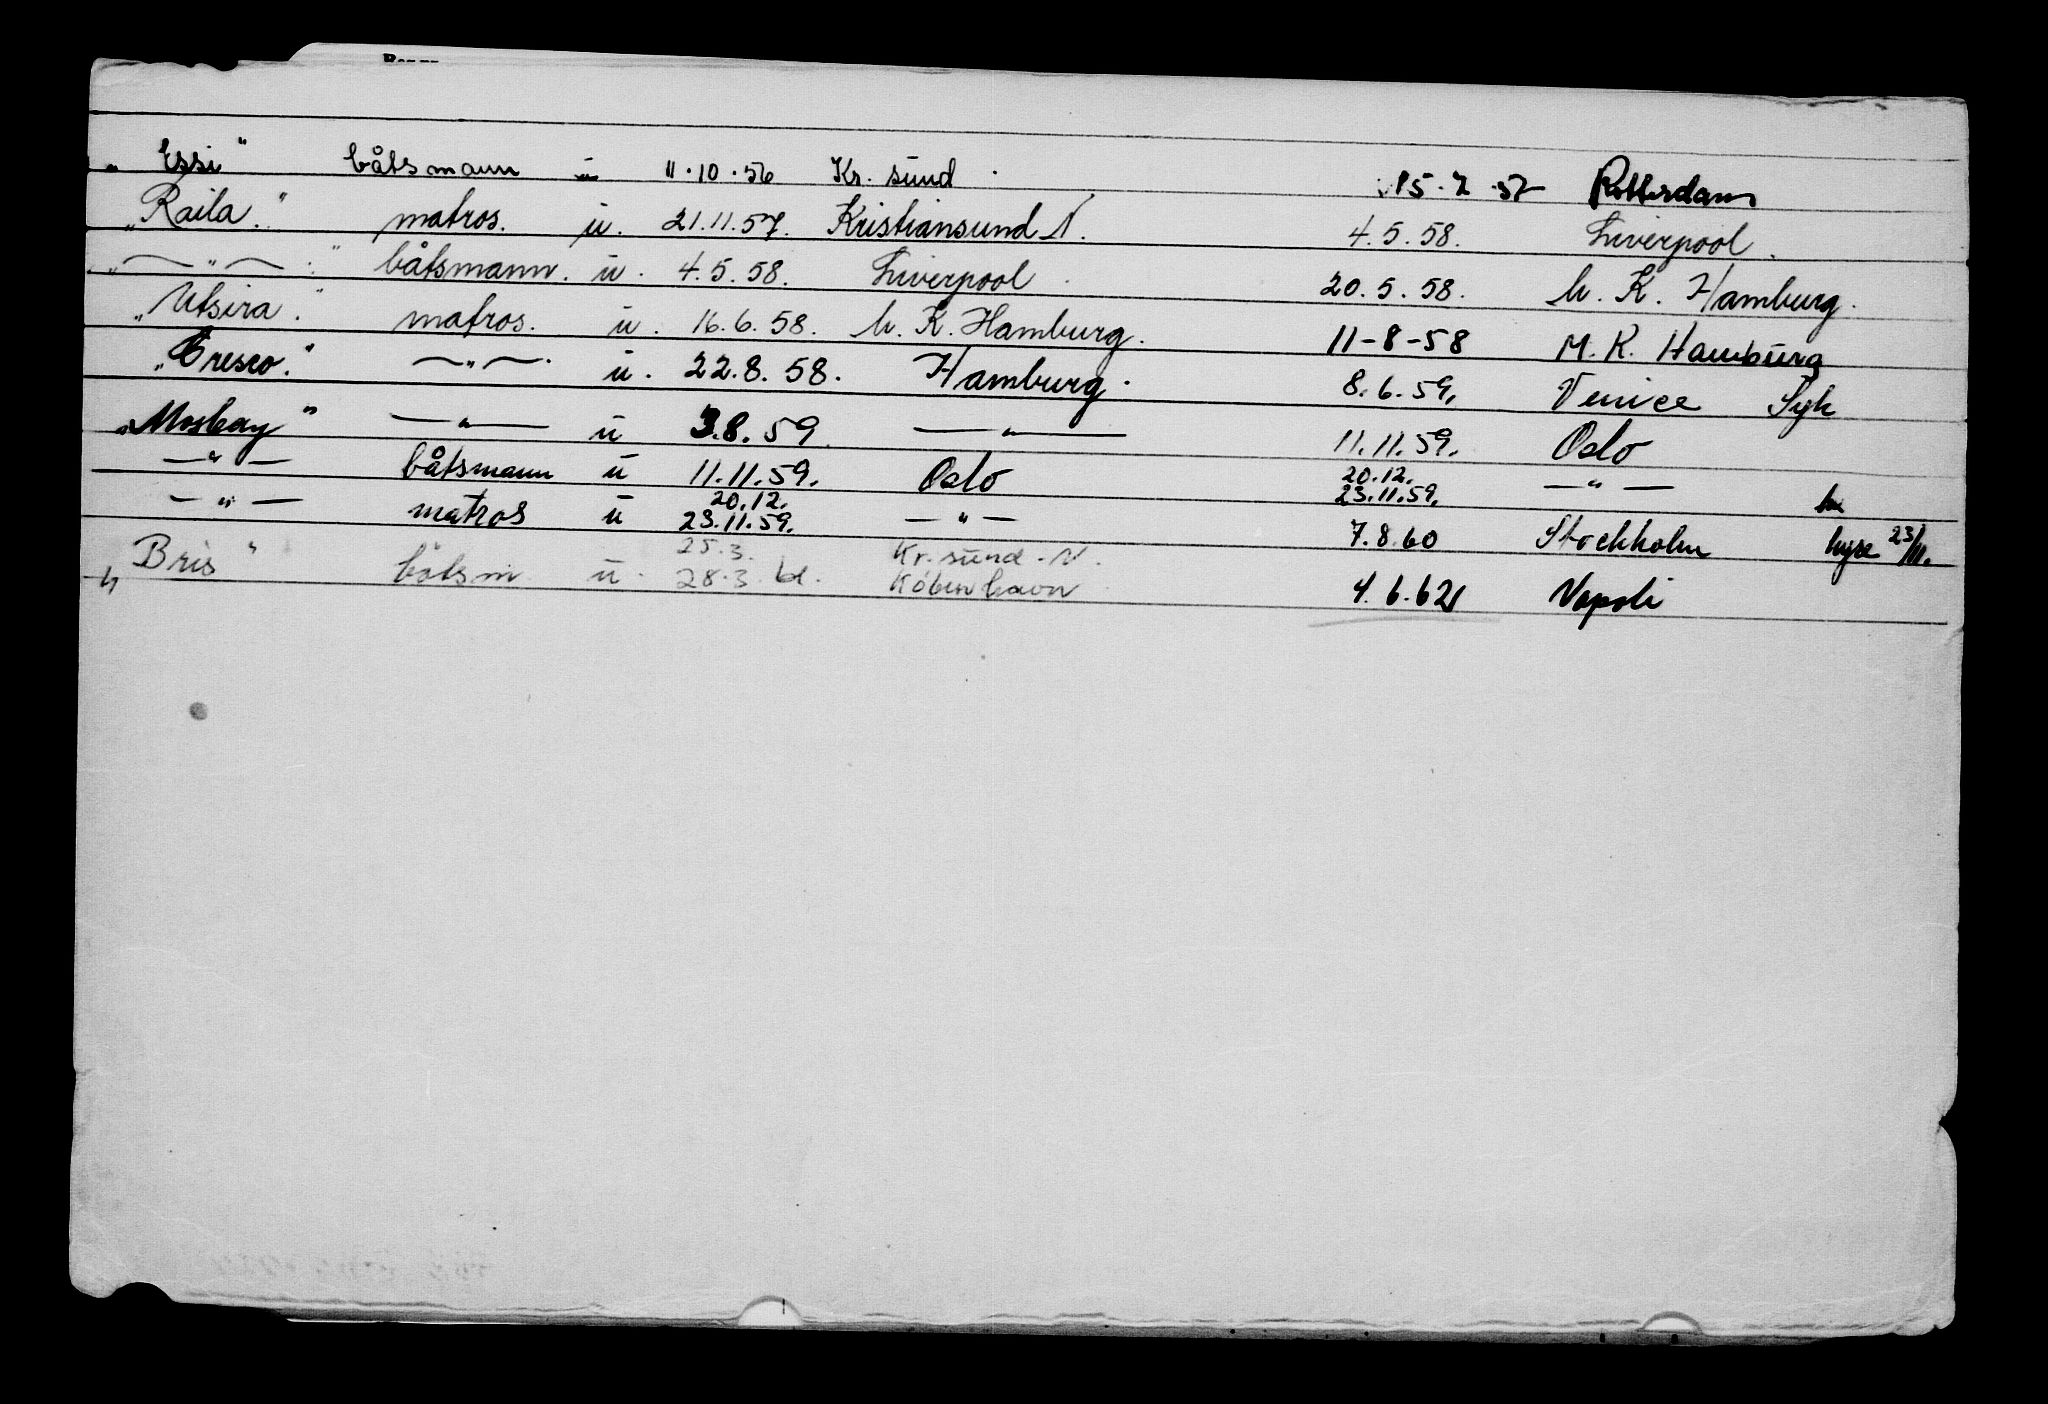 „ Essi " båtsmann u 11.10.56 Kr. sund . 15.7.57 Rotterdam
„Raila." matros. u. 21.11.57. Kristiansund N. 4.5.58. Liverpool.
„ — " — " båtsmann. u. 4.5.58. Liverpool. 20.5.58. h. K. Hamburg.
„Utsira." matros. u. 16.6.58. h. K. Hamburg. 11-8-58 M. K. Hamburg
„Cresco." — " —. u. 22.8.58. Hamburg. 8.6.59. Venice Syk
„Mosbay" — " — u 3.8.59. — " — 11.11.59. Oslo
— " — båtsmann u 11.11.59. Oslo 20.12. 23.11.59. — " —
— " — matros u 20.12. 23.11.59. — " — 7.8.60 Stockholm hyre 23/11.
„Bris" båtsm. u. 25.3. 28.3.61. Kr. sund. N. København 4.6.62 Napoli